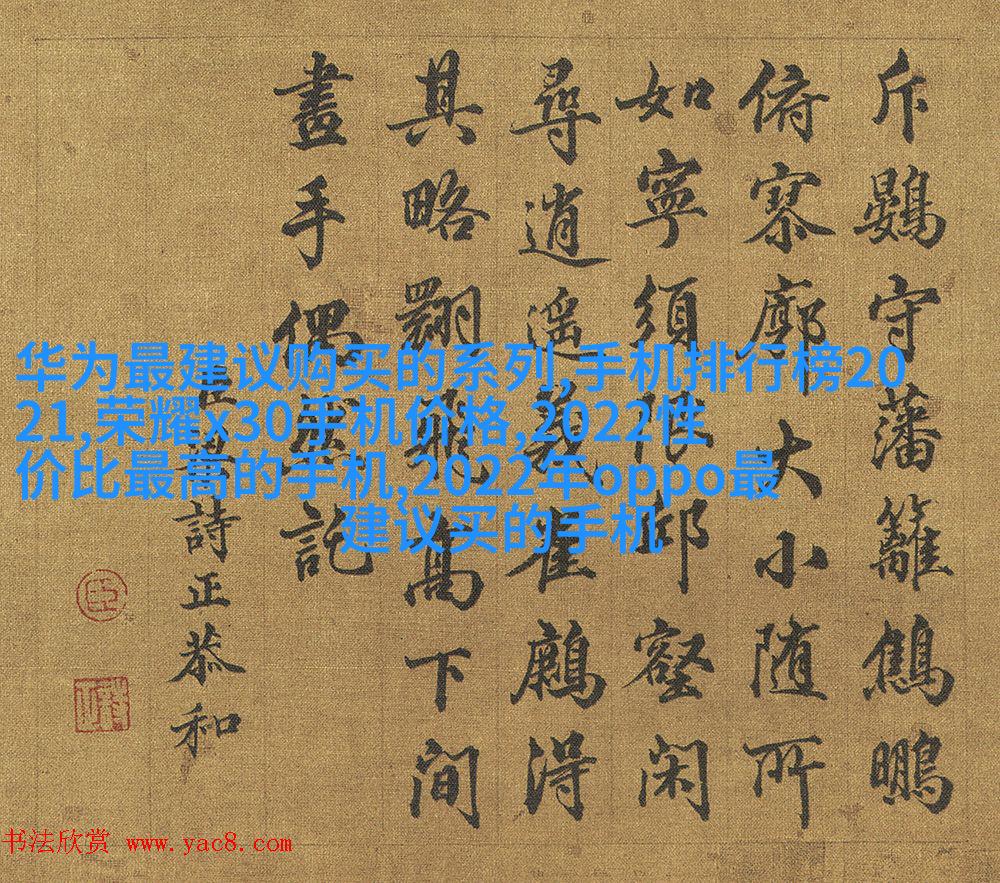 斥鷃守藩籬鷦鵬
俯寥廓大小随所
如寧須限邱壑閑
尋逍遥義得
其略翾飛高下間
畫手偶然託
臣梁詩正恭和
华为最建议购买的系列,手机排行榜20
21,荣耀x30手机价格,2022性
价比最高的手机,2022年oppo最
建议买的手机
书法欣赏 www.yac8.com